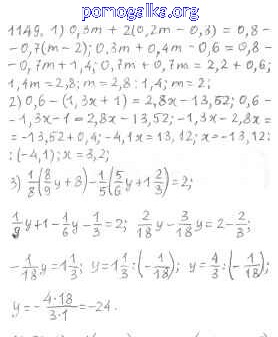 pomogalka.org
1149. 1) 0,3m + 2(0,2m - 0,3) = 0,8 -
- 0,7(m - 2); 0,3m + 0,4m - 0,6 = 0,8 -
- 0,7m + 1,4; 0,7m + 0,7m = 2,2 + 0,6;
1,4m = 2,8; m = 2,8 : 1,4; m = 2;
2) 0,6 - (1,3x + 1) = 2,8x - 13,52; 0,6 -
- 1,3x - 1 = 2,8x - 13,52; -1,3x - 2,8x =
= -13,52 + 0,4; -4,1x = 13,12; x = -13,12 :
: (-4,1); x = 3,2;
3) 1/8 (8/9 y + 8) - 1/5 (5/6 y + 1 2/3) = 2;
1/9 y + 1 - 1/6 y - 1/3 = 2; 2/18 y - 3/18 y = 2 - 2/3;
- 1/18 y = 1 1/3; y = 1 1/3 : (- 1/18); y = 4/3 : (- 1/18);
y = - 4·18/3·1 = -24.